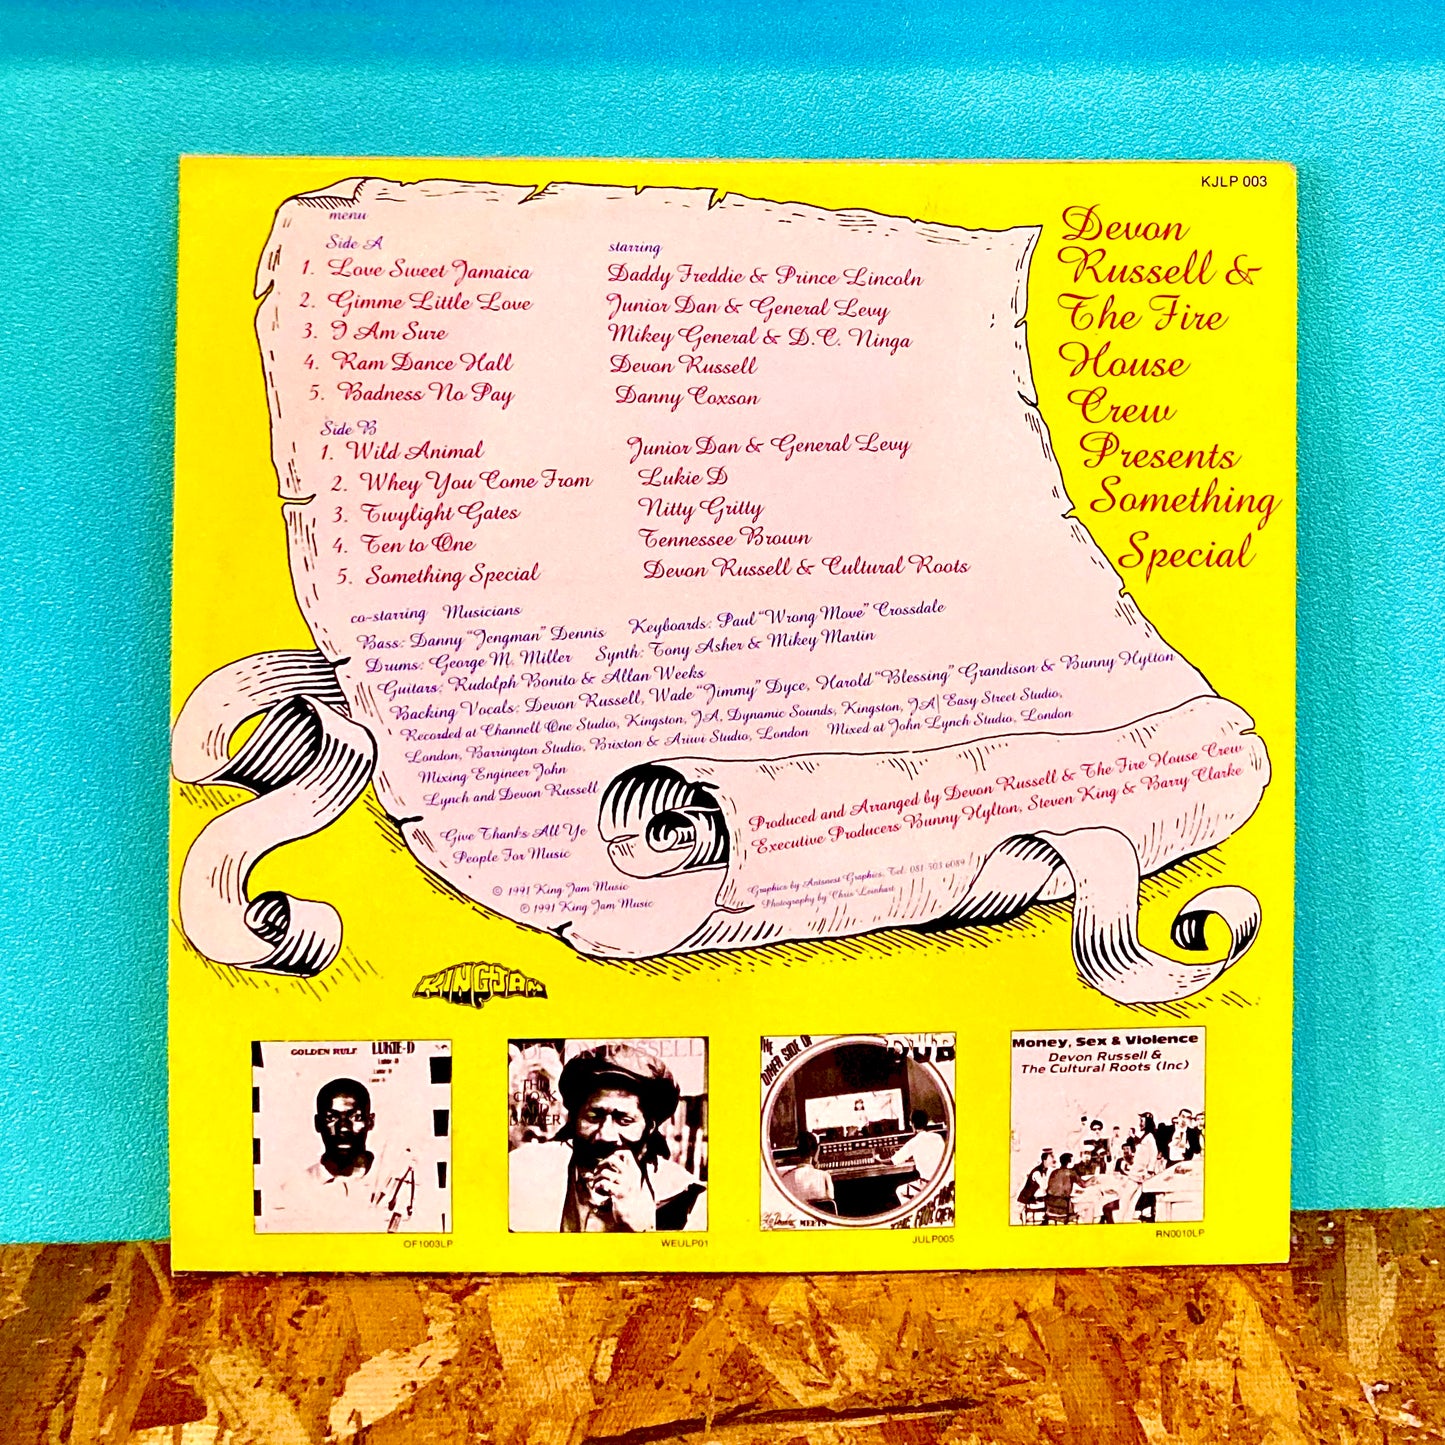 KJLP 003
Devon
Russell &
The Fire
House
Crew
Presents
Something
Special
menu
Side A
starring
1. Love Sweet Jamaica Daddy Freddie & Prince Lincoln
2. Gimme Little Love Junior Dan & General Levy
3. I Am Sure Mikey General & D.C. Ninga
4. Ram Dance Hall Devon Russell
5. Badness No Pay Danny Coxson
Side B
1. Wild Animal Junior Dan & General Levy
2. Whey You Come From Lukie D
3. Twylight Gates Nitty Gritty
4. Ten to One Tennessee Brown
5. Something Special Devon Russell & Cultural Roots
co-starring Musicians
Bass: Danny "Jengman" Dennis Keyboards: Paul "Wrong Move" Crossdale
Drums: George M. Miller Synth: Tony Asher & Mikey Martin
Guitars: Rudolph Bonito & Allan Weeks
Backing Vocals: Devon Russell, Wade "Jimmy" Dyce, Harold "Blessing" Grandison & Bunny Hylton
Recorded at Channell One Studio, Kingston, JA, Dynamic Sounds, Kingston, JA Easy Street Studio,
London, Barrington Studio, Brixton & Ariwi Studio, London Mixed at John Lynch Studio, London
Mixing Engineer John
Lynch and Devon Russell
Produced and Arranged by Devon Russell & The Fire House Crew
Executive Producers Bunny Hylton, Steven King & Barry Clarke
Give Thanks All Ye
People For Music
Graphics by Antsnest Graphics, Tel: 081 503 6089
Photography by Chris Leinhart
© 1991 King Jam Music
© 1991 King Jam Music
KING JAM
GOLDEN RULE LUKIE-D
OF1003LP
DEVON RUSSELL
WEULP01
THE OTHER SIDE OF DUB
MEETS
JULP005
Money, Sex & Violence
Devon Russell &
The Cultural Roots (Inc)
RN0010LP